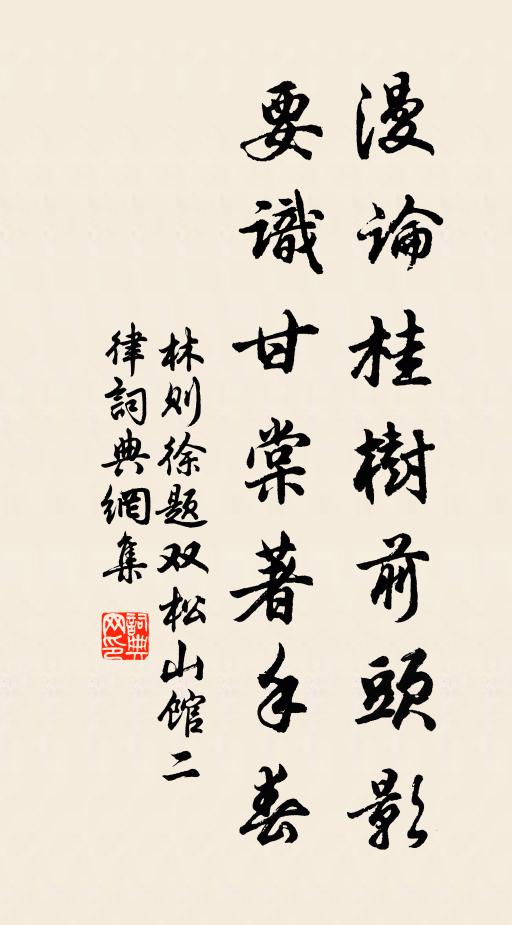 漫論桂樹前頭影
要識甘棠著手春
林则徐题双松山館二
律詞典網集
詞典网印